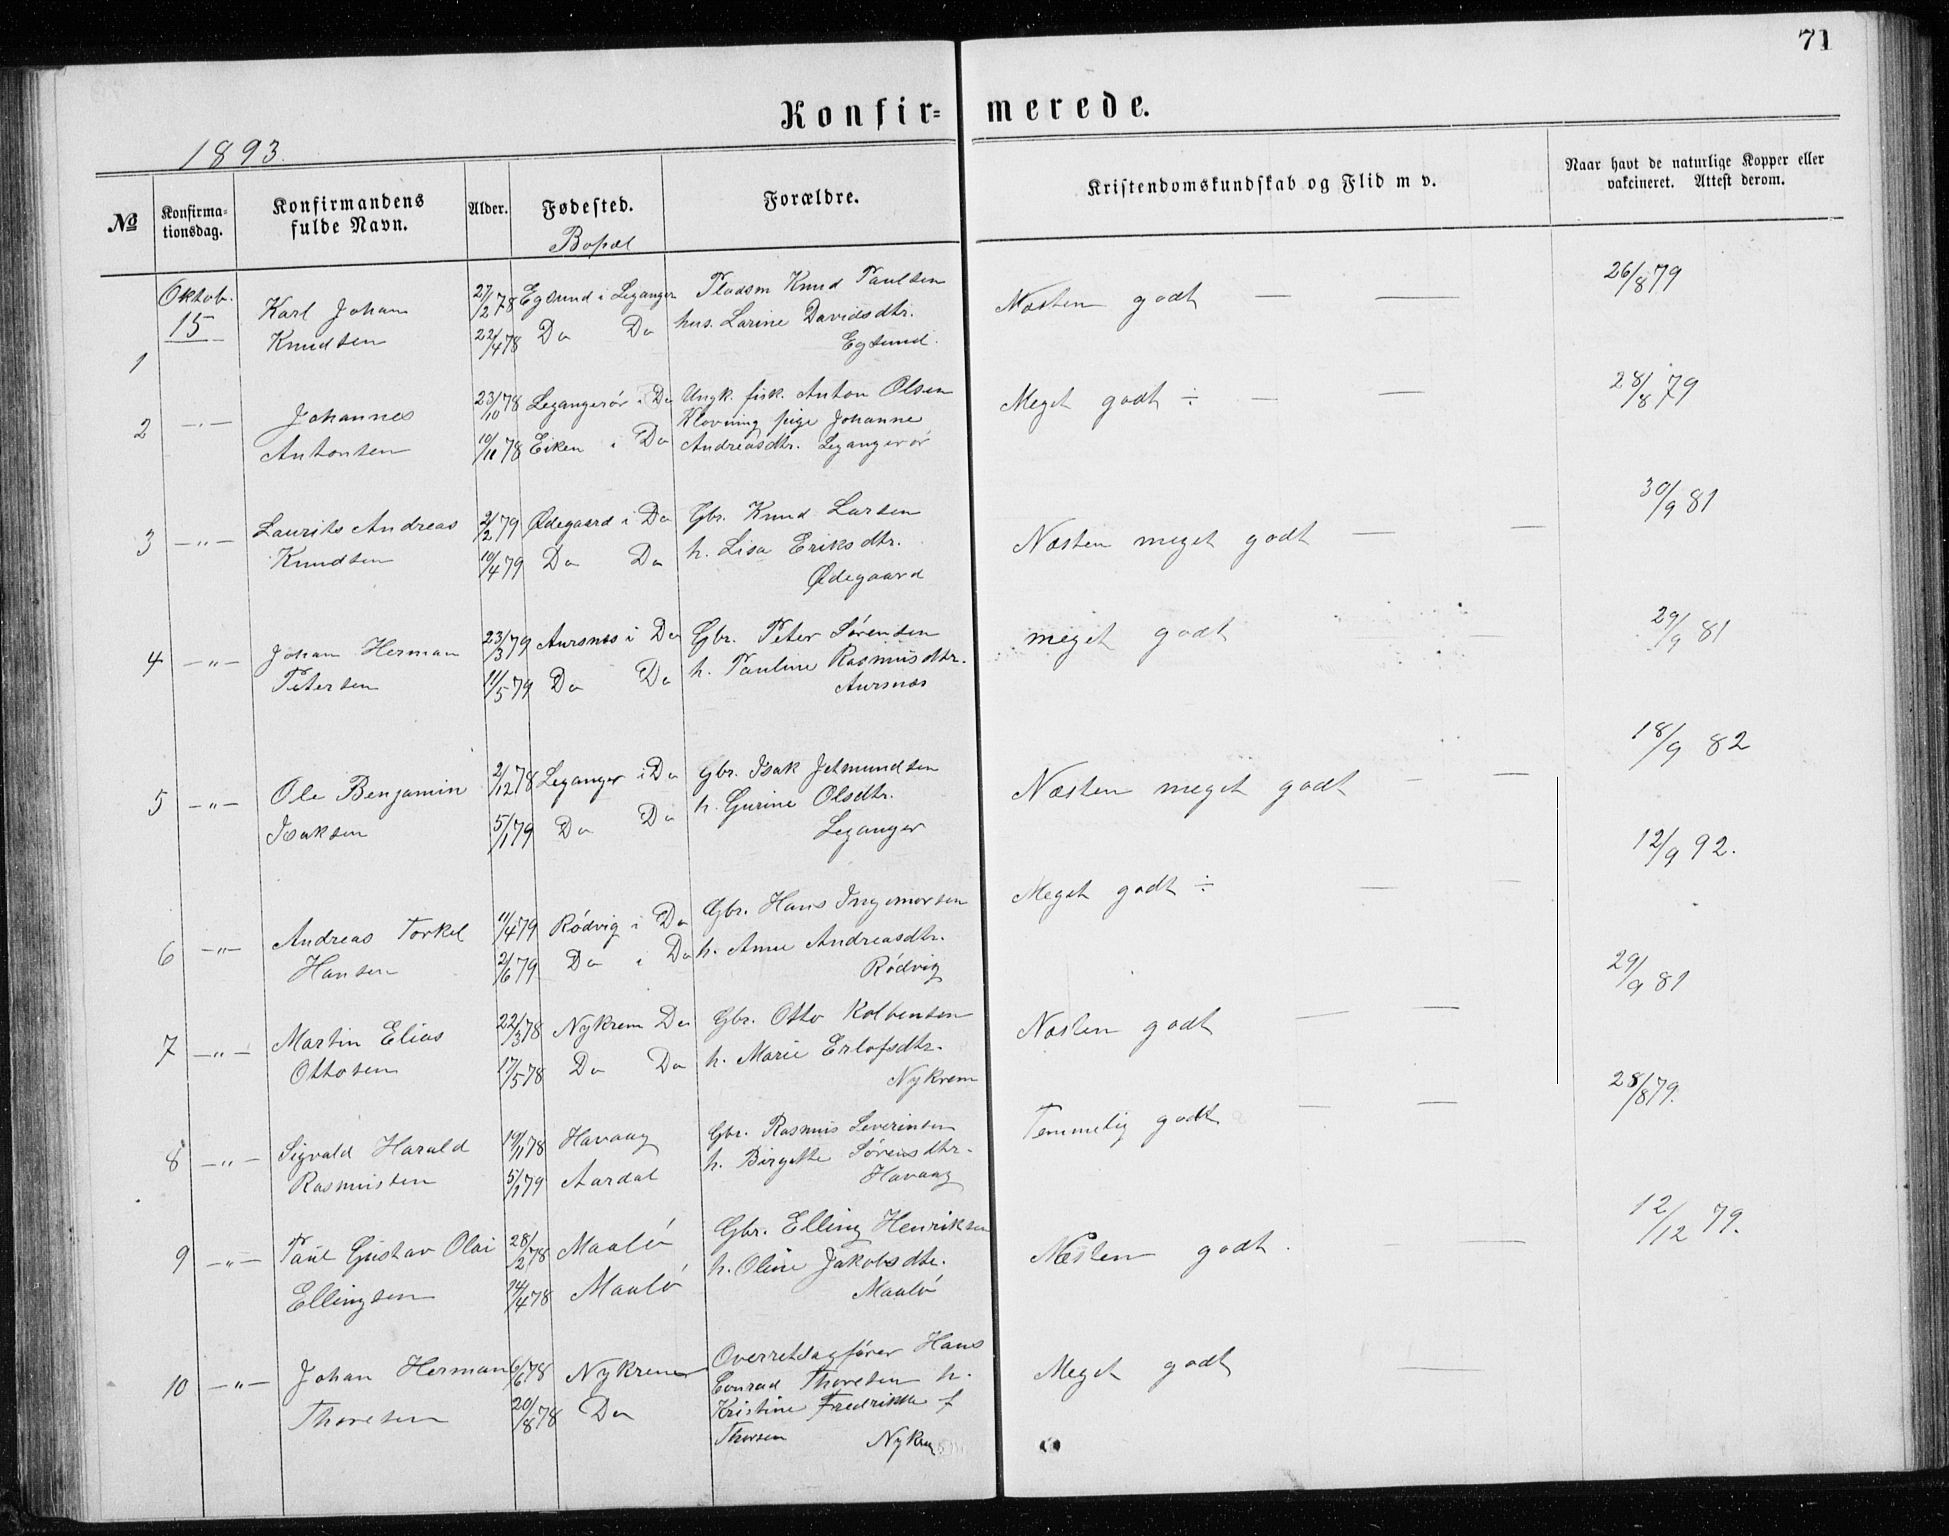 71
Konfir- merede.
1893.
№ Konfirma-tionsdag. Konfirmandens fulde Navn. Alder. Fødested. Bopæl Forældre. Kristendomskundskab og Flid m v. Naar havt de naturlige Kopper eller vakcineret. Attest derom.
Oktob. 27/2 78 Egsund i Leganger Pladsm Knud Paulsen 26/8 79
15 Karl Johan hus. Larine Davidsdtr. Næsten godt — —
1 Knudsen 22/4 78 Do Do Egsund.
23/10 78 Legangerør i Do Ungk. fisk. Anton Olsen 28/8 79
2 —"— Johannes Klovning pige Johanne Meget godt ÷ — —
Antonsen 10/11 78 Eiken i Do Andreasdtr. Legangerør
3 —"— Laurits Andreas 2/2 79 Ødegaard i Do Gbr. Knud Larsen 30/9 81
Knudsen 10/4 79 Do Do h. Lisa Eriksdtr. Næsten meget godt — —
Ødegaard
4 —"— Johan Herman 23/3 79 Aursnæs i Do Gbr. Peter Sørensen meget godt — 29/9 81
Petersen 11/5 79 Do Do h. Pauline Rasmusdtr.
Aursnæs
5 —"— Ole Benjamin 2/12 78 Leganger i Do Gbr. Isak Jetmundsen 18/9 82
Isaksen 5/1 79 Do Do h. Gurine Olsdtr. Næsten meget godt — —
Leganger
6 —"— Andreas Torkel 11/4 79 Rødvig i Do Gbr. Hans Ingemorsen Meget godt ÷ — — 12/9 92.
Hansen 2/6 79 Do i Do h. Anne Andreasdtr.
Rødvig
7 —"— Martin Elias 22/3 78 Nykrem Do Gbr. Otto Kolbensen Næsten godt — — 29/9 81
Ottosen 17/5 78 Do Do h. Marie Erlofsdtr.
Nykrem
8 —"— Sigvald Harald 19/11 78 Havaag Gbr. Rasmus Severinsen Temmelig godt — — 28/8 79.
Rasmussen 5/1 79 Aardal h. Birgitte Sørensdtr.
Havaag
9 —"— Paul Gustav Olai 28/2 78 Maalø Gbr. Elling Henriksen Næsten godt. — — 12/12 79.
Ellingsen 14/4 78 Maalø h. Oline Jakobsdtr.
Maalø
10 —"— Johan Herman 6/6 78 Nykrem Overretssagfører Hans Meget godt —
Thoresen 20/8 78 Do Conrad Thoresen h.
Kristine Fredrikke f
Thorsen Nykrem